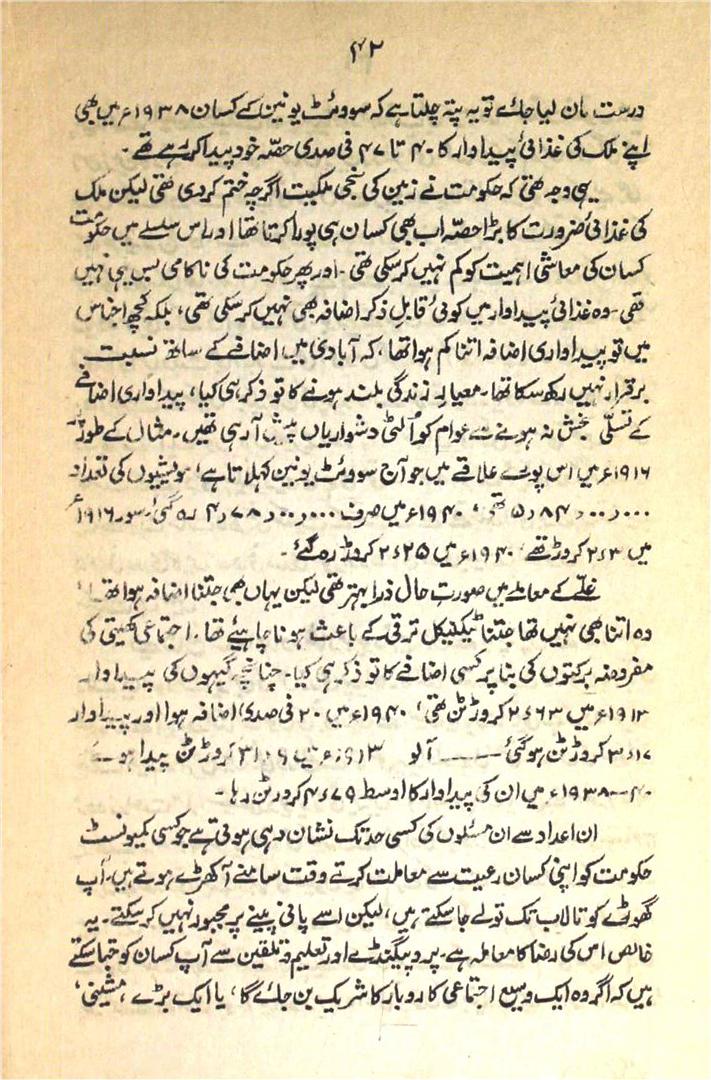 ۴۲
درست مان لیا جائے تو یہ پتہ چلتا ہے کہ سوویٹ یونین کے کسان ۱۹۳۸ء میں بھی
اپنے ملک کی غذائی پیداوار کا ۴۰ تا ۴۷ فی صدی حصّہ خود پیدا کر رہے تھے۔
یہی وجہ تھی کہ حکومت نے زمین کی نجی ملکیت اگرچہ ختم کر دی تھی لیکن ملک
کی غذائی ضرورت کا بڑا حصّہ اب بھی کسان ہی پورا کرتا تھا اور اس سلسلے میں حکومت
کسان کی معاشی اہمیت کو کم نہیں کر سکی تھی۔ اور پھر حکومت کی ناکامی بس یہی نہیں
تھی۔ وہ غذائی پیداوار میں کوئی قابلِ ذکر اضافہ بھی نہیں کر سکی تھی، بلکہ کچھ اجناس
میں تو پیداواری اضافہ اتنا کم ہوا تھا، کہ آبادی میں اضافے کے ساتھ نسبت
برقرار نہیں رکھ سکا تھا۔ معیارِ زندگی بلند ہونے کا تو ذکر ہی کیا، پیداواری اضافے
کے تسلّی بخش نہ ہونے سے عوام کو اُلٹی دشواریاں پیش آ رہی تھیں۔ مثال کے طور پر
۱۹۱۶ء میں اس پورے علاقے میں جو آج سوویٹ یونین کہلاتا ہے، مویشیوں کی تعداد
۵,۸۴,۰۰,۰۰۰ تھی، ۱۹۴۰ء میں صرف ۴,۷۸,۰۰,۰۰۰ رہ گئی، سور ۱۹۱۶ء
میں ۲ء۳ کروڑ تھے، ۱۹۴۰ء میں ۲ء۲۵ کروڑ رہ گئے۔
غلّے کے معاملے میں صورتِ حال ذرا بہتر تھی لیکن یہاں بھی جتنا اضافہ ہوا تھا،
وہ اتنا بھی نہیں تھا جتنا ٹیکنیکل ترقی کے باعث ہونا چاہیئے تھا۔ اجتماعی کھیتی کی
مفروضہ برکتوں کی بنا پر کسی اضافے کا تو ذکر ہی کیا۔ چنانچہ گیہوں کی پیداوار
۱۹۱۳ء میں ۲ء۶۳ کروڑ ٹن تھی، ۱۹۴۰ء میں ۲۰ فی صدی اضافہ ہوا اور پیداوار
۳ء۱۷ کروڑ ٹن ہو گئی ۔۔۔ آلو ۱۹۱۳ء میں کروڑ ٹن پیدا ہوئے
۴۰—۱۹۳۸ء میں ان کی پیداوار کا اوسط ۴ء۷۹ کروڑ ٹن رہا۔
ان اعداد سے ان مسئلوں کی کسی حد تک نشان دہی ہوتی ہے جو کسی کمیونسٹ
حکومت کو اپنی کسان رعیت سے معاملت کرتے وقت سامنے آ کھڑے ہوتے ہیں۔ آپ
گھوڑے کو تالاب تک تو لے جا سکتے ہیں، لیکن اسے پانی پینے پر مجبور نہیں کر سکتے۔ یہ
خالص اس کی رضا کا معاملہ ہے۔ پروپیگنڈے اور تعلیم و تلقین سے آپ کسان کو جتا سکتے
ہیں کہ اگر وہ ایک وسیع اجتماعی کاروبار کا شریک بن جائے گا، یا ایک بڑے، مشینی،